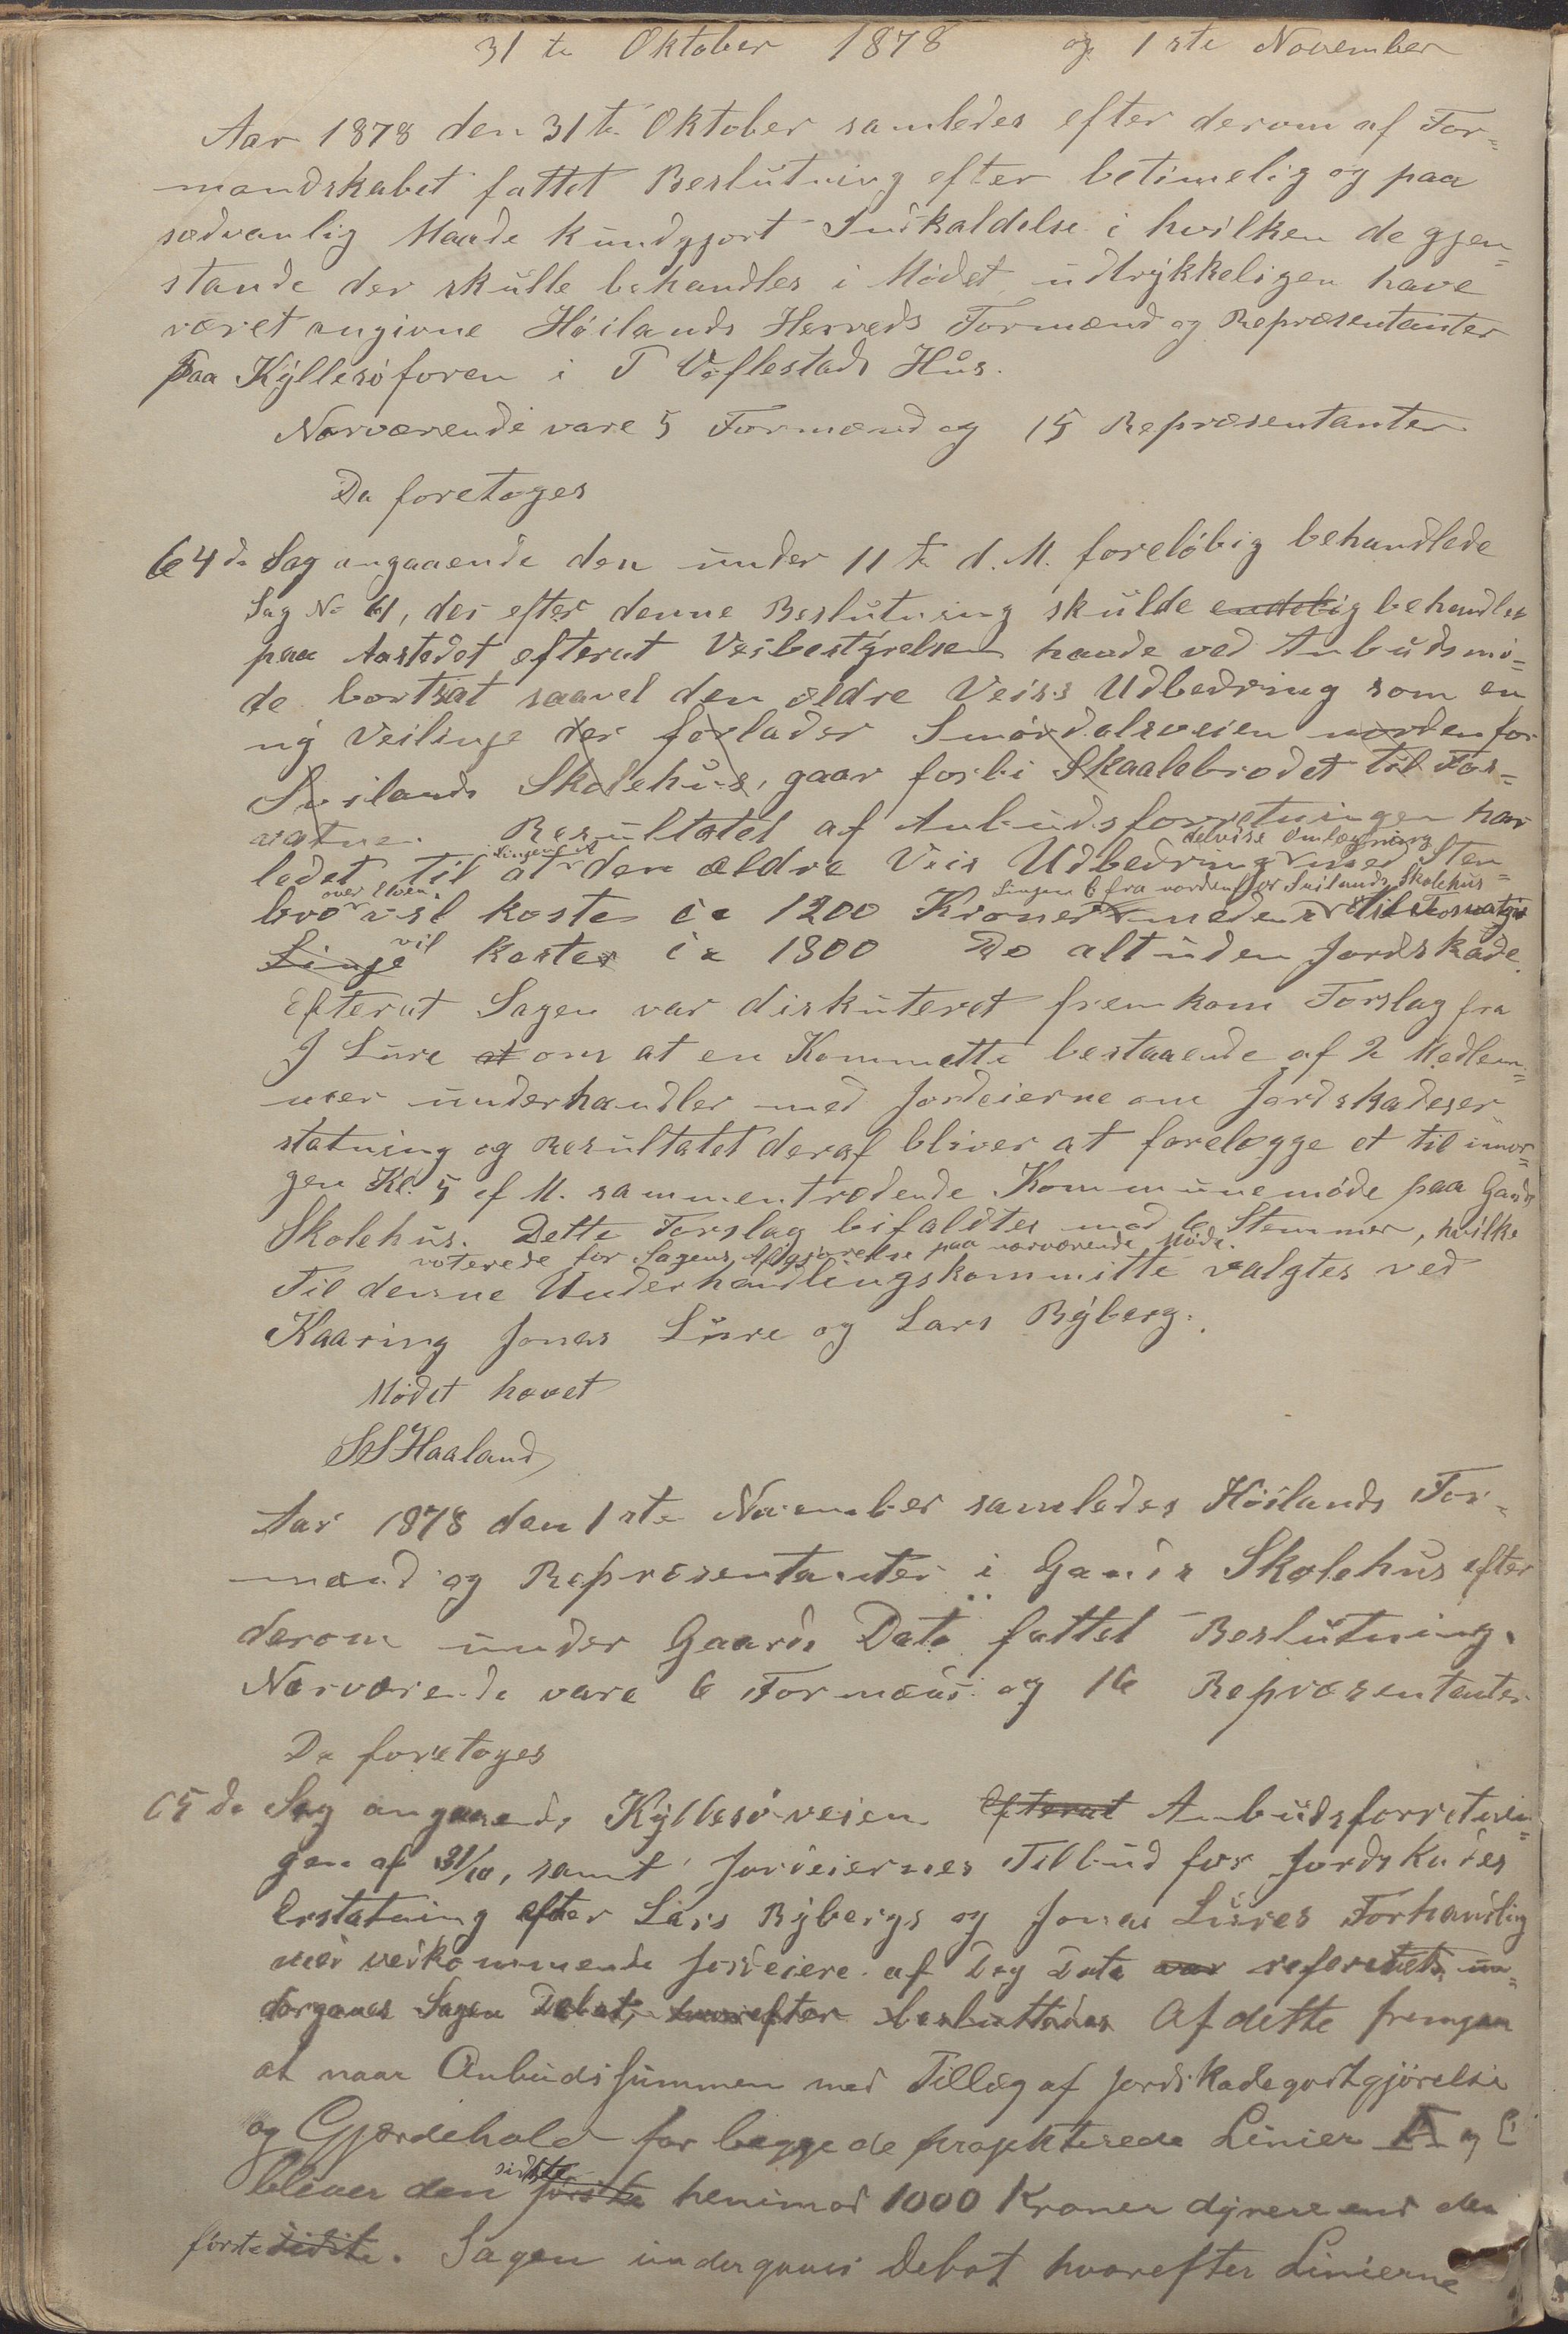 31te Oktober 1878 og 1ste November
Aar 1878 den 31te Oktober samledes efter derom af For=
mandskabet fattet Beslutning efter betimelig og paa
sædvanlig Maade kundgjort Indkaldelse i hvilken de gjen=
stande der skulle behandles i Mødet udtrykkeligen have
været angivne Høilands Herreds Formænd og Repræsentanter
paa Kyllesøforen i T Vøflestads Hus.
Nærværende vare 5 Formænd og 15 Repræsentanter
Da foretoges
64de Sag angaaende den under 11te d. M. foreløbig behandlede
Sag No 61, der efter denne Beslutning skulde endelig behandles
paa Aastedet efterat Veibestyrelsen havde ved Anbudsmø=
de bortsat saavel den ældre Veiss Udbedring som en
ny Veilinje der forlader Smørdalsveien nordenfor
Svilands Skolehus, gaar forbi Skaalebrodet til Fos=
vatne. Resultatet af Anbudsforretningen har
delviss Omlægning
ledet til at den ældre Veis Udbedring med Sten=
over Elven Linjen B fra nordenfor Svilands Skolehus
bro vil koste ca 1200 Kroner meden til Fosvatn
Linje vil koster ca 1800 Do alt uden Jordskade.
Efterat Sagen var diskuteret fremkom Forslag fra
J Lure at om at en Kommitte bestaaende af 2 Medlem=
mer underhandler med Jordeierne om Jordskadeser
statning og Resultatet deraf bliver at forelægge et til imor=
gen Kl. 5 ef M. sammentrædende Kommunemøde paa Gands
Skolehus. Dette Forslag bifaldtes mod 6 Stemmer, hvilke
voterede for Sagens Afgjørelse paa nærværende Møde.
Til denne Underhandlingskommitte valgtes ved
Kaaring Jonas Lure og Lars Ryberg.
Mødet hævet
SSHaaland
Aar 1878 den 1ste November samledes Høilands For=
mænd og Repræsentanter i Gands Skolehus efter
derom under Gaards Dato fattet Beslutning.
Nærværende vare 6 Formænd og 16 Repræsentanter
Da foretoges
65de Sag angaaende Kyllesøveien. Efterat Anbudsforretnin=
gen af 31/10, samt Jordeiernes Tilbud for Jordskades
Erstatning efter Lars Rybergs og Jonas Lures Forhandling
med vedkommende Jordeiere af Dag Dato var refereret, un=
dergaves Sagen Debat, hvorefter besluttedes Af dette fremgaar
at naar Anbudssummen med Tillæg af Jordskadegodtgjørelse
og Gjærdehold for begge de projekterede Linier A og B
bliver den sidste første henimod 1000 Kroner dyrere end den
første sidste. Sagen undergaves Debat hvorefter Linierne